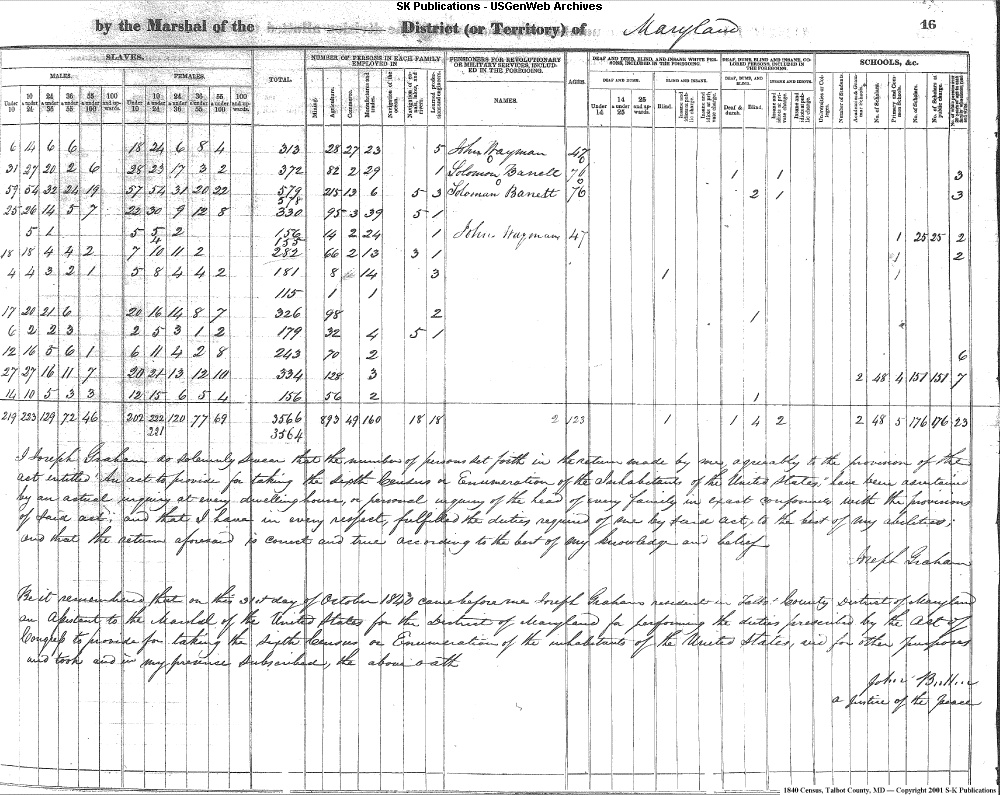 SK Publications - USGenWeb Archives
by the Marshal of the District (or Territory) of Maryland 16
SLAVES. TOTAL NUMBER OF PERSONS IN EACH FAMILY EMPLOYED IN PENSIONERS FOR REVOLUTIONARY OR MILITARY SERVICES, INCLUDED IN THE FOREGOING. AGES. DEAF AND DUMB, BLIND AND INSANE WHITE PERSONS, INCLUDED IN THE FOREGOING. DEAF, DUMB, BLIND AND INSANE, COLORED PERSONS, INCLUDED IN THE FOREGOING. SCHOOLS, &c.
MALES. FEMALES. NAMES. DEAF AND DUMB. BLIND AND INSANE. DEAF, DUMB, AND BLIND. INSANE AND IDIOTS.
Under 10 10 & under 24 24 & under 36 36 & under 55 55 & under 100 100 and upwards. Under 10 10 & under 24 24 & under 36 36 & under 55 55 & under 100 100 and upwards. Mining. Agriculture. Commerce. Manufactures and trades. Navigation of the ocean. Under 14 14 & under 25 25 and upwards Blind. Deaf & dumb. Blind. Universities or Colleges. No. of Scholars.
6 4 6 6 18 24 6 8 4 313 28 27 23 5 John Wayman 47
31 27 20 2 6 28 23 17 3 2 372 82 2 29 1 Solomon Barrett 76 1 1 3
59 54 32 24 19 57 54 31 20 22 579 215 13 6 5 3 Solomon Barrett 76 2 1 3
578
25 26 14 5 7 22 30 9 12 8 330 95 3 39 5 1
5 1 5 5 2 156 14 2 24 1 John Wayman 47 1 25 25 2
4 155
18 18 4 4 2 7 10 11 2 282 66 2 13 3 1 1 2
4 4 3 2 1 5 8 4 4 2 181 8 14 3 1 1
115 1 1
17 20 21 6 20 16 14 8 7 326 98 2 1
6 2 2 3 2 5 3 1 2 179 32 4 5 1
12 16 5 6 1 6 11 4 2 8 243 70 2 6
27 27 16 11 7 20 21 13 12 10 334 128 3 2 48 4 151 151 7
14 10 5 3 3 12 15 6 5 4 156 56 2 1
219 223 129 72 46 202 222 120 77 69 3566 893 49 160 18 18 2 123 1 1 4 2 2 48 5 176 176 23
221 3564
I Joseph Graham do solemnly swear that the number of persons set forth in the return made by me, agreeably to the provision of the
act entitled "An act to provide for taking the sixth Census or Enumeration of the Inhabitants of the United States," have been ascertained
by an actual inquiry at every dwelling house, or personal inquiry of the head of every family, in exact conformity with the provisions
of said act; and that I have in every respect, fulfilled the duties required of me by said act, to the best of my abilities;
and that the return aforesaid is correct and true according to the best of my knowledge and belief
Joseph Graham
Be it remembered that on this 31st day of October 1840 came before me Joseph Graham resident in Talbot County District of Maryland
an Assistant to the Marshal of the United States for the District of Maryland for performing the duties prescribed by the Act of
Congress to provide for taking the sixth Census or Enumeration of the inhabitants of the United States, and for other purposes
and took and in my presence subscribed, the above oath
John
a Justice of the Peace
1840 Census, Talbot County, MD — Copyright 2001 S-K Publications